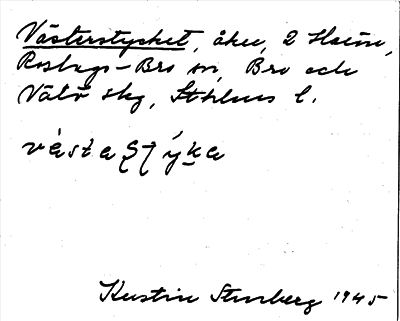 Västerstycket, åker, 2 Heim,
Roslags-Bro sn, Bro och
Vätö skg, Sthlms l.
västa ʂʈýka
Kerstin Sternberg 1945